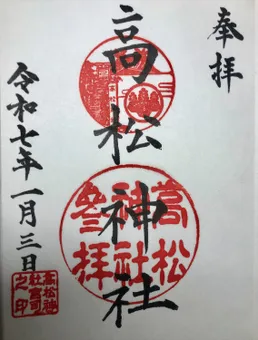 奉拝
高松神社
令和七年一月三日
高松
神社
参拝
高松神
社宮司
之印